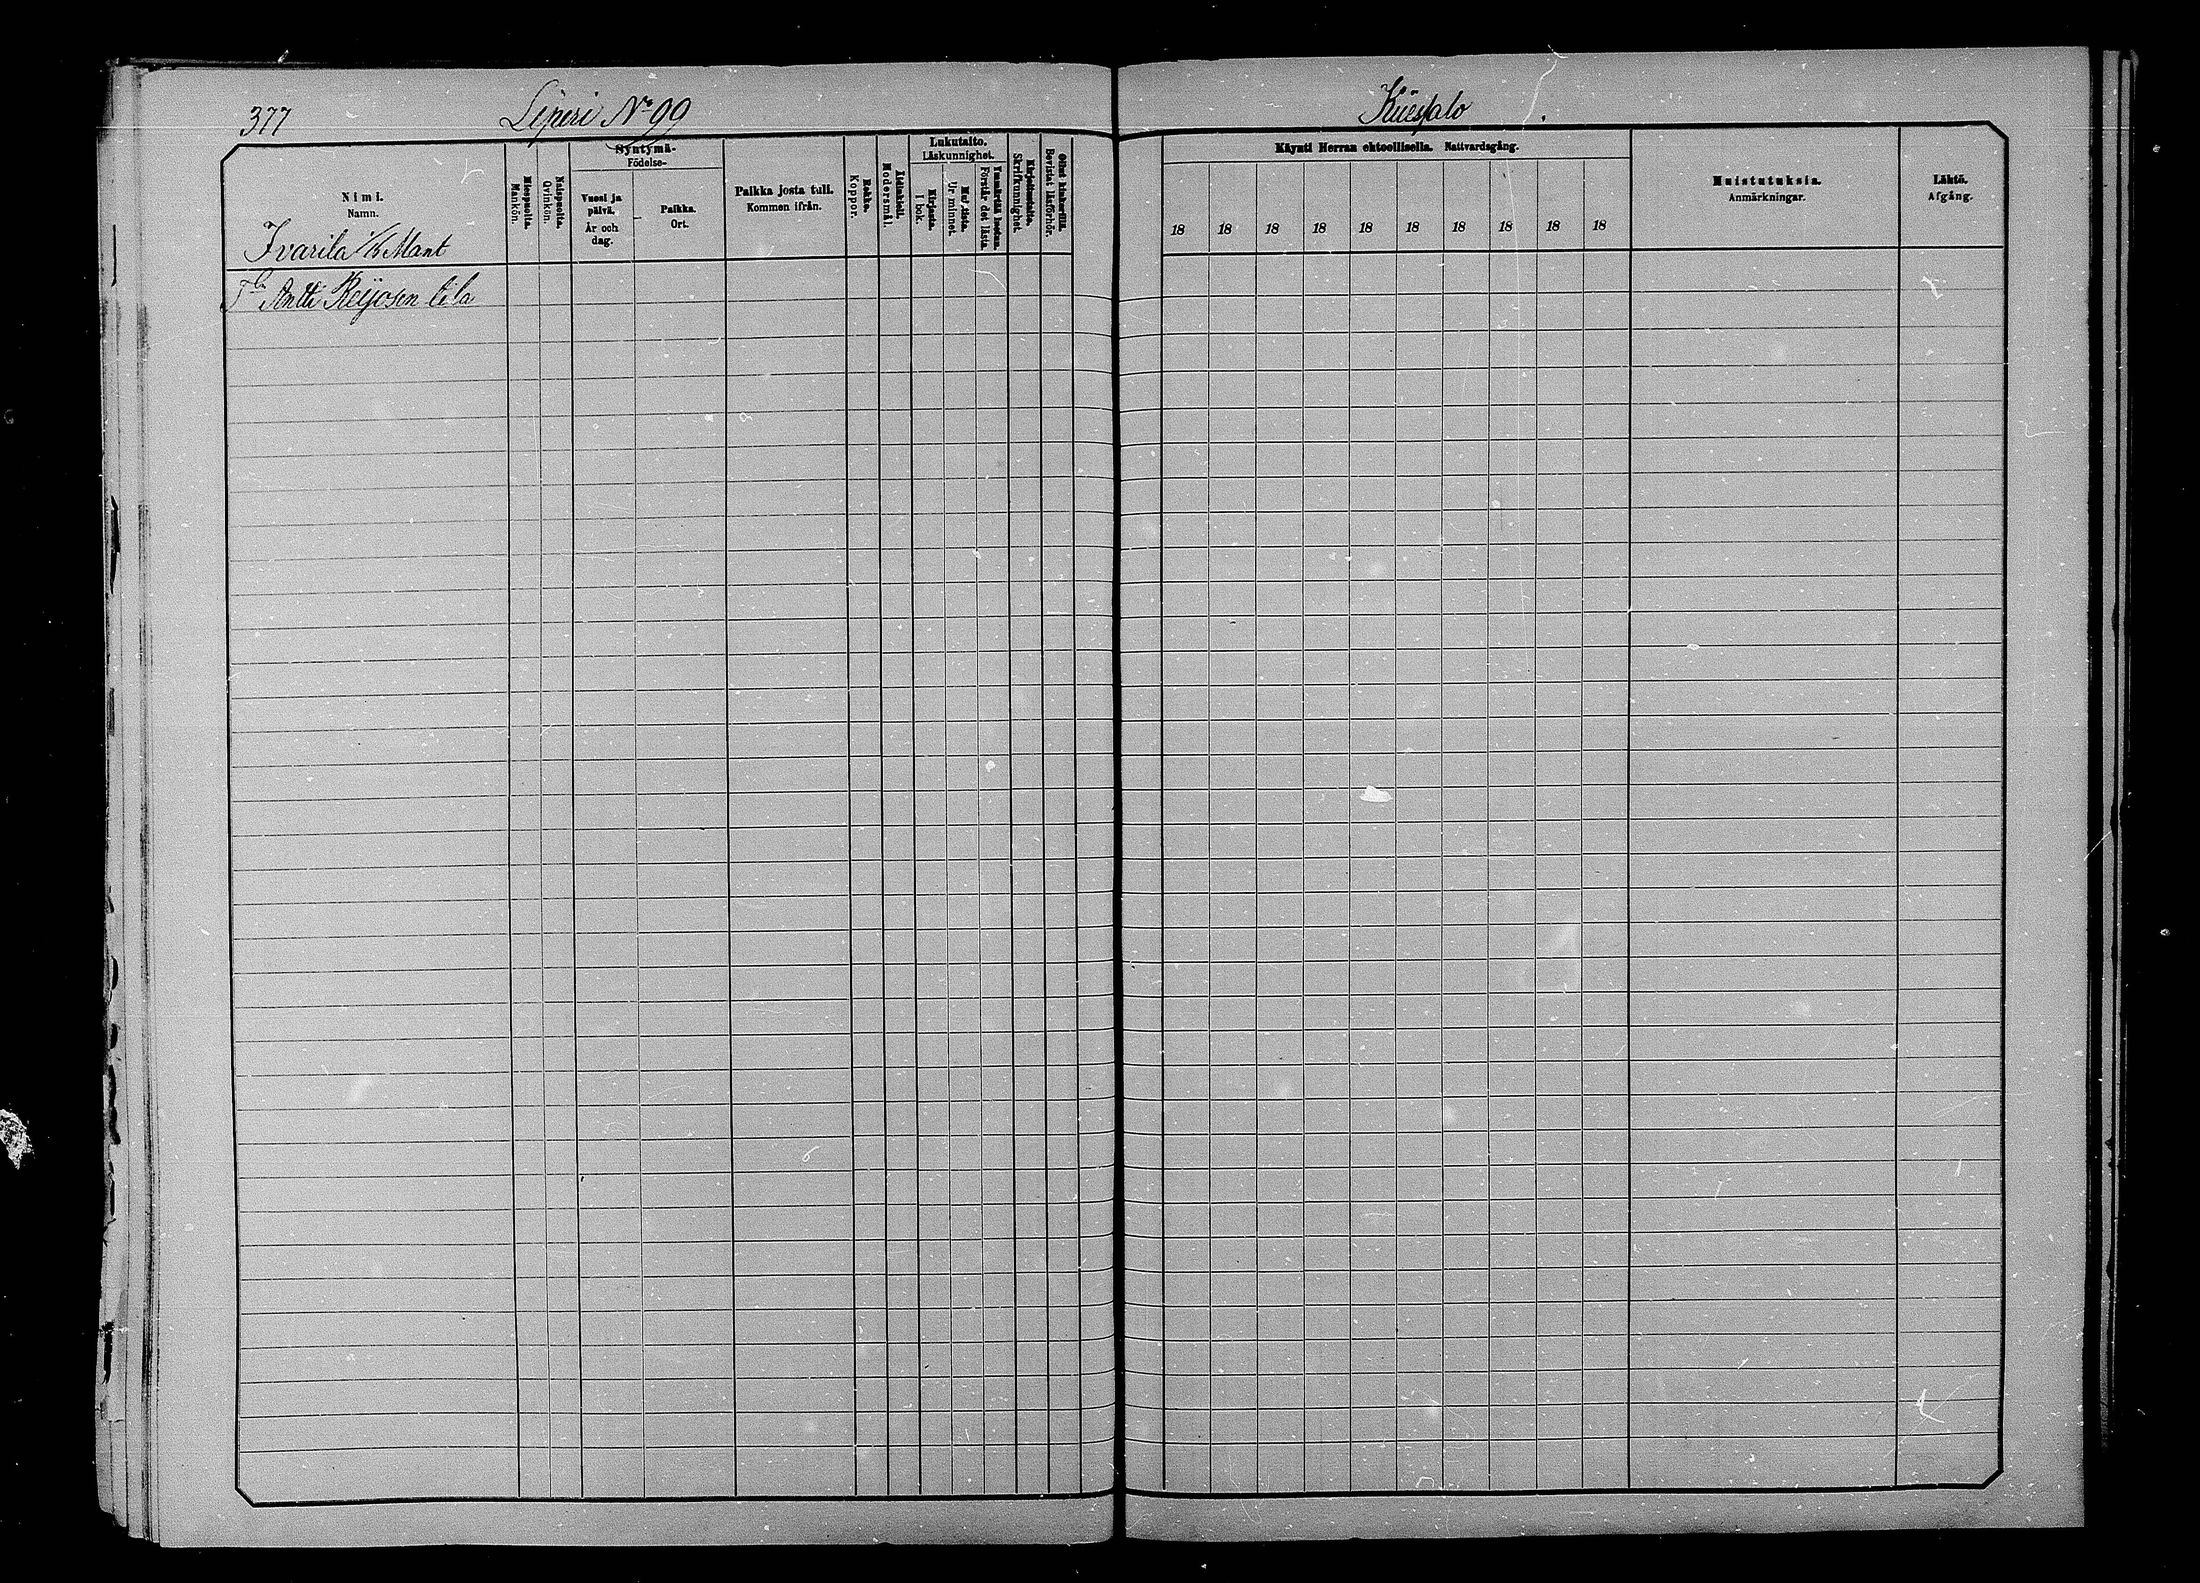 377
Liperi No 99
Kuesalo
Syntymä-
Födelse-
Lukutaito.
Läskunnighet.
Käynti Herran ehtoollisella. Nattvardsgång.
Nimi.
Namn.
Miespuolta.
Mankön.
Naispuolta.
Qvinkön.
Vuosi ja
päivä.
År och
dag.
Paikka.
Ort.
Paikka josta tuli.
Kommen ifrån.
Rokko.
Koppor.
Äidinkieli.
Modersmål.
Kirjasta.
I bok.
Ur minnet.
Förstår det lästa.
Kirjoitustaito.
Skrifkunnighet.
Bevistat läsförhör.
18 18 18 18 18 18 18 18 18 18
Muistutuksia.
Anmärkningar.
Lähtö.
Afgång.
Ivarila Mant
Antti Reijosen tila